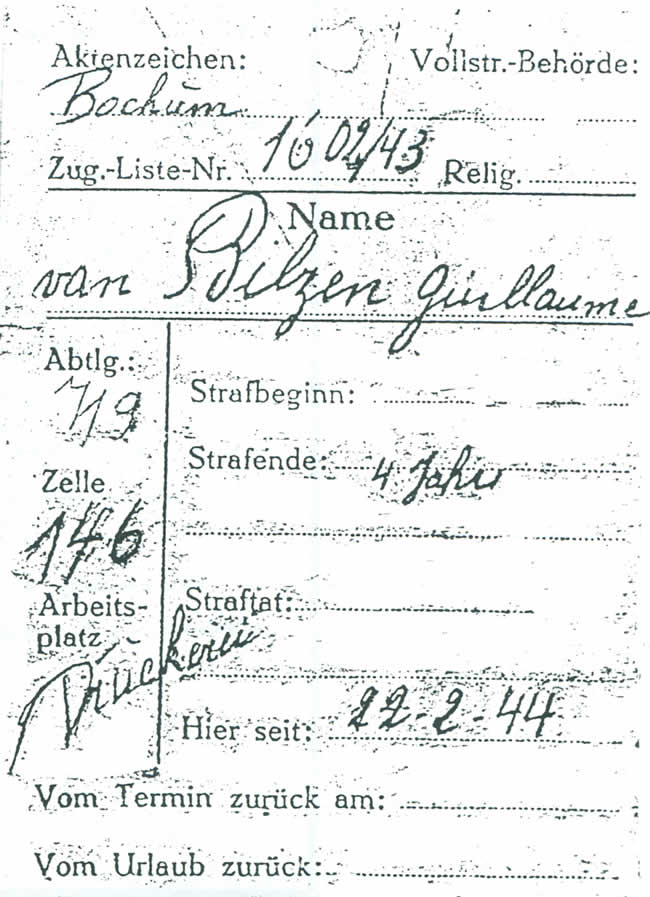 Aktenzeichen: Vollstr.-Behörde:
Bochum
Zug.-Liste-Nr. 1602/43 Relig.
Name
van Bilzen Guillaume
Abtlg.:
Strafbeginn:
Strafende: 4 Jahre
Zelle
146
Arbeits-
platz
Straftat:
Druckerei
Hier seit: 22-2-44
Vom Termin zurück am:
Vom Urlaub zurück: